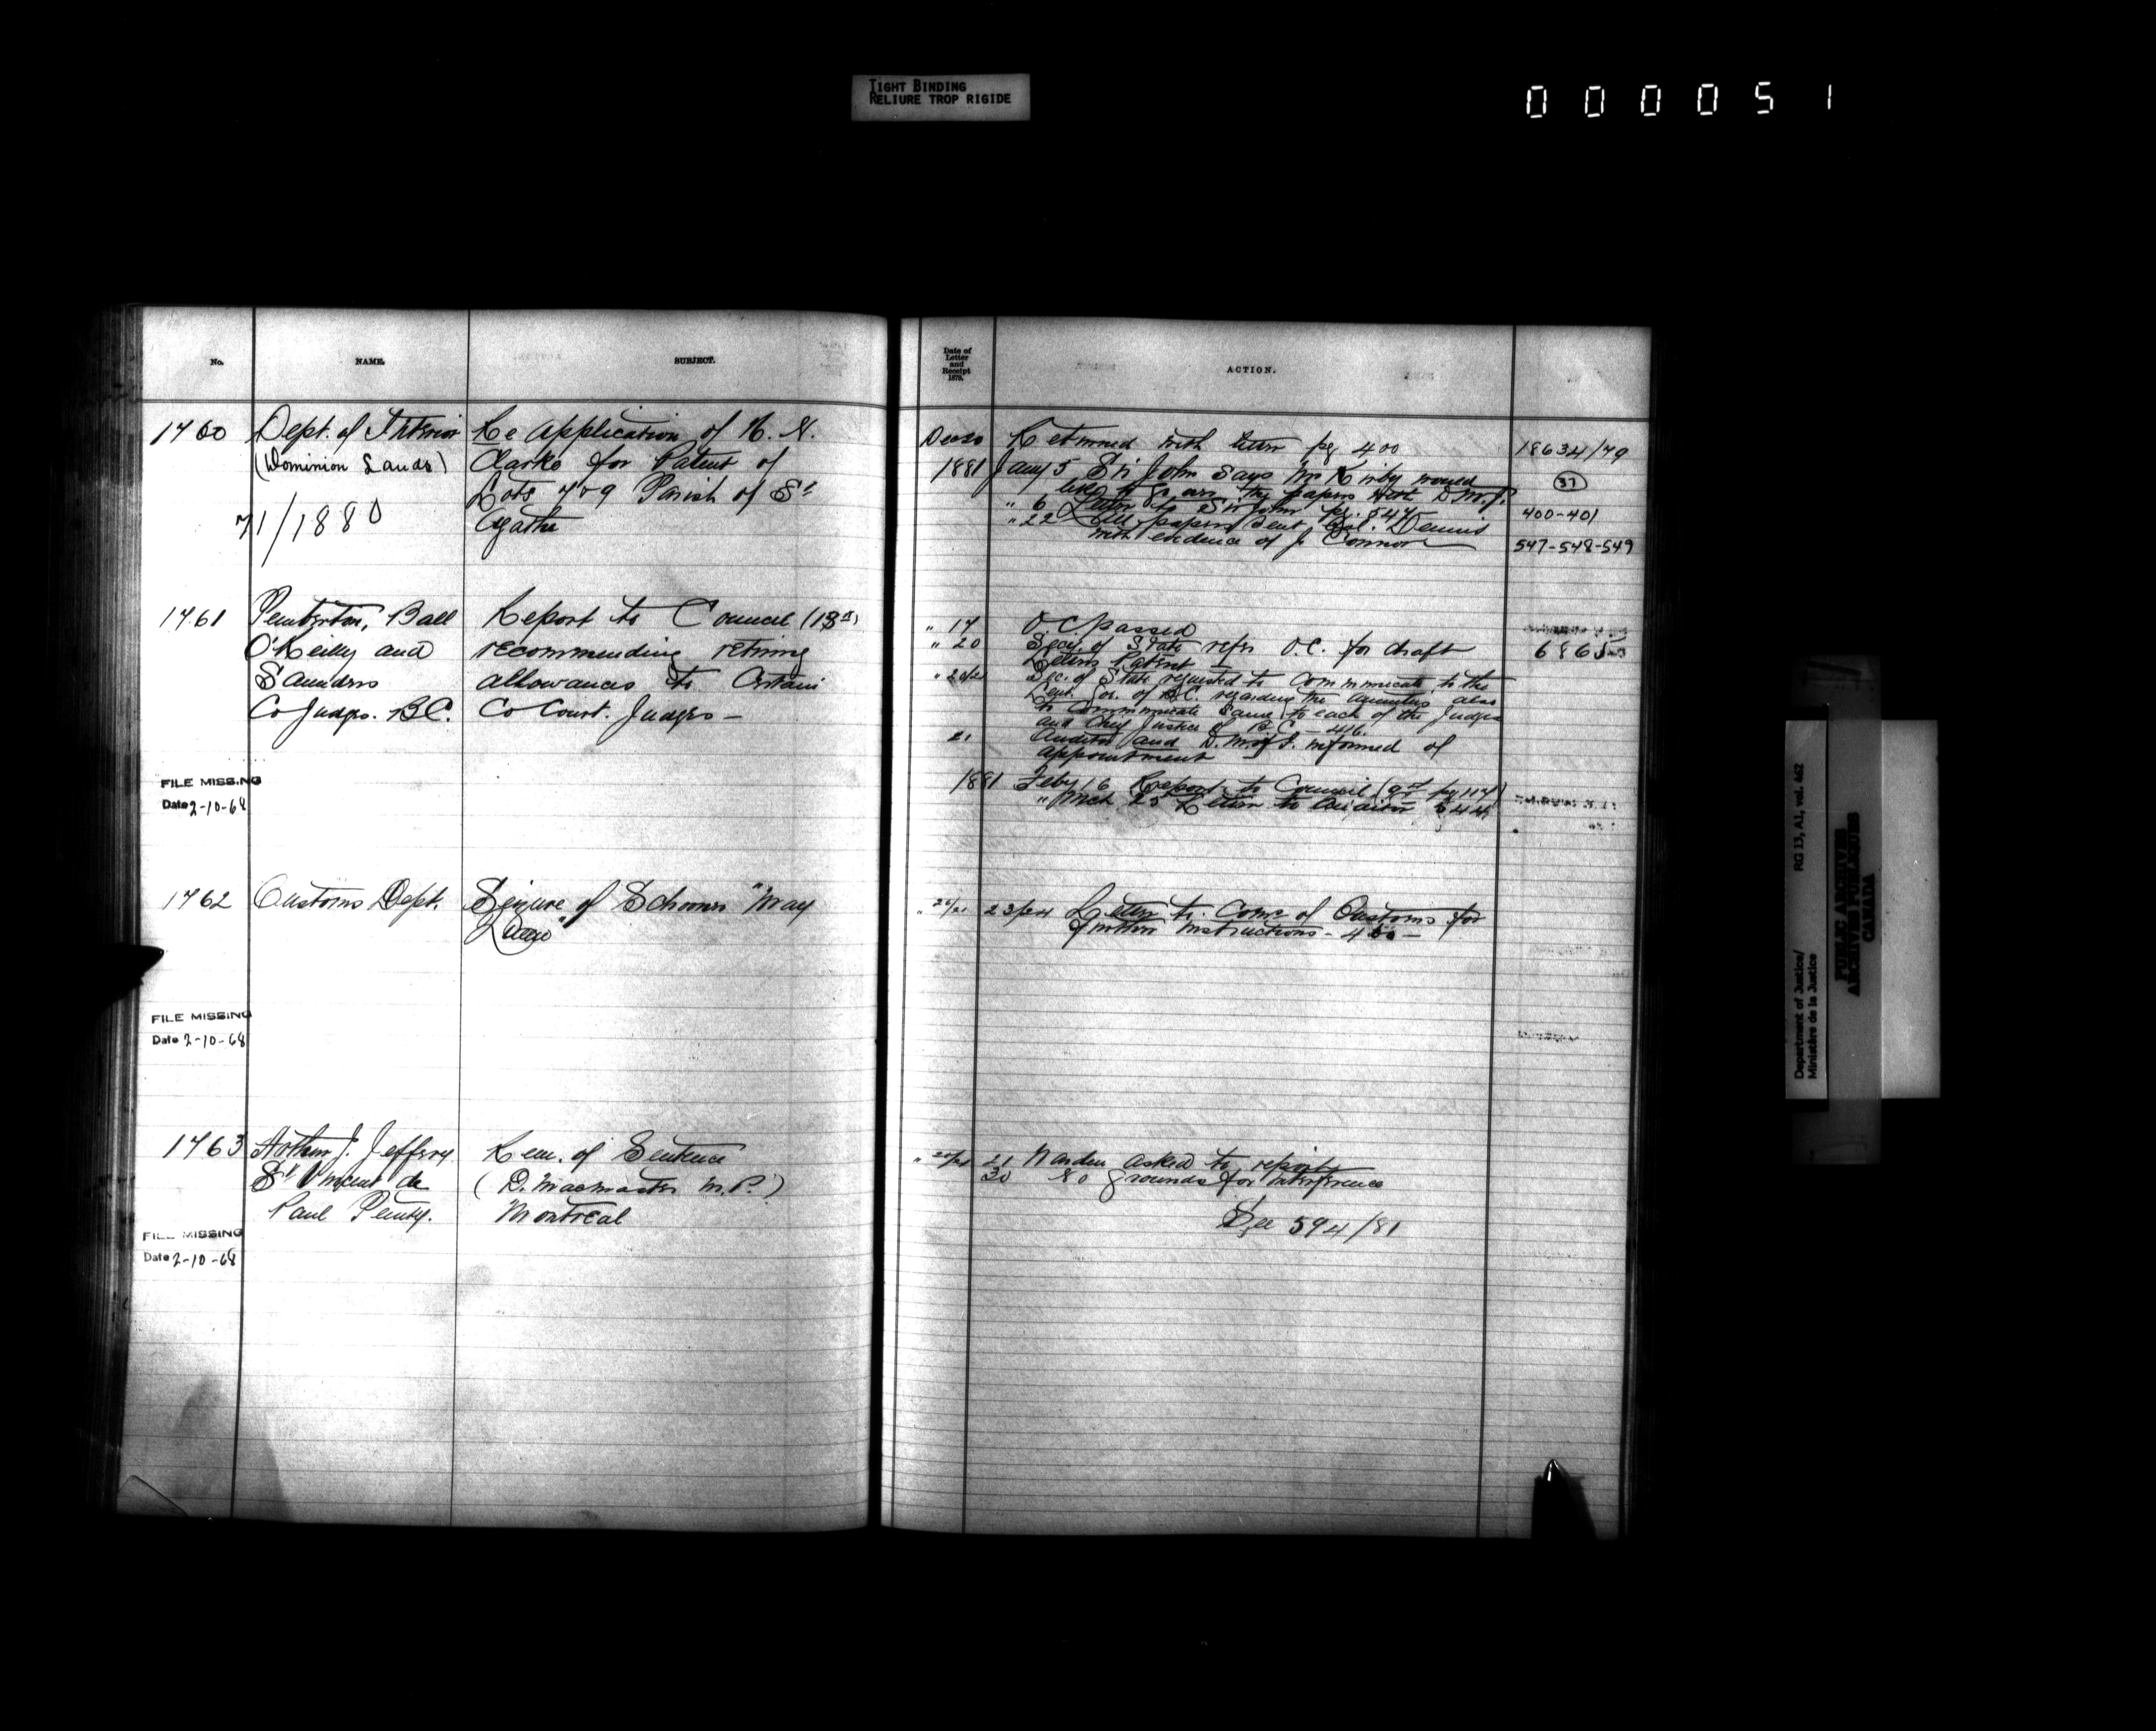 TIGHT BINDING
RELIURE TROP RIGIDE
000051
No.
NAME.
SUBJECT.
1760
Dept. of Interior
(Dominion Lands)
71/1880
Re application of H. N.
Clarke for Patent of
Lots 7 & 9 Parish of St
Agathe
1761
Pemberton, Ball
O'Reilly and
Saunders
Co Judges. B.C.
Report to Council (13th)
recommending retiring
allowances to Certain
Co Court. Judges —
FILE MISSING
Date 2-10-68
1762
Customs Dept.
Seizure of Schooner "May
FILE MISSING
Date 2-10-68
1763
Arthur J. Jeffrey
St Vincent de
Paul Penty.
Rem. of Sentence
(D. Macmaster M.P.)
Montreal
FILE MISSING
Date 2-10-68
Date of
Letter
and
Receipt
1879.
ACTION.
Dec 20 Returned with letter pg 400
1881 Jany 5 Sir John says Mr Kirby would
like to go over the papers with D.M.J.
" 6 Letter to Sir John pg. 547
" 22 All papers sent Col. Dennis
with evidence of J. Connor
18634/79
37
400-401
547-548-549
" 17 O.C. passed
" 20 Secy. of State refers O.C. for draft
Letters Patent
6865
" 20/21 Sec. of State requested to Communicate to the
Lieut. Gov. of B.C. regarding the annuities also
to Communicate same to each of the Judges
and Chief Justice of B.C. - 416.
21 Auditor and D.M. of F. informed of
appointment
1881 Feby 16 Report to Council
" Mch 25 Letter to Auditor
" 20/21 23/24 Letter to Comr of Customs for
further instructions -
" 20/21 21 Warden asked to report
30 No grounds for interference
See 594/81
RG 13, A1, vol. 462
Department of Justice/
Ministère de la Justice
PUBLIC ARCHIVES
ARCHIVES PUBLIQUES
CANADA